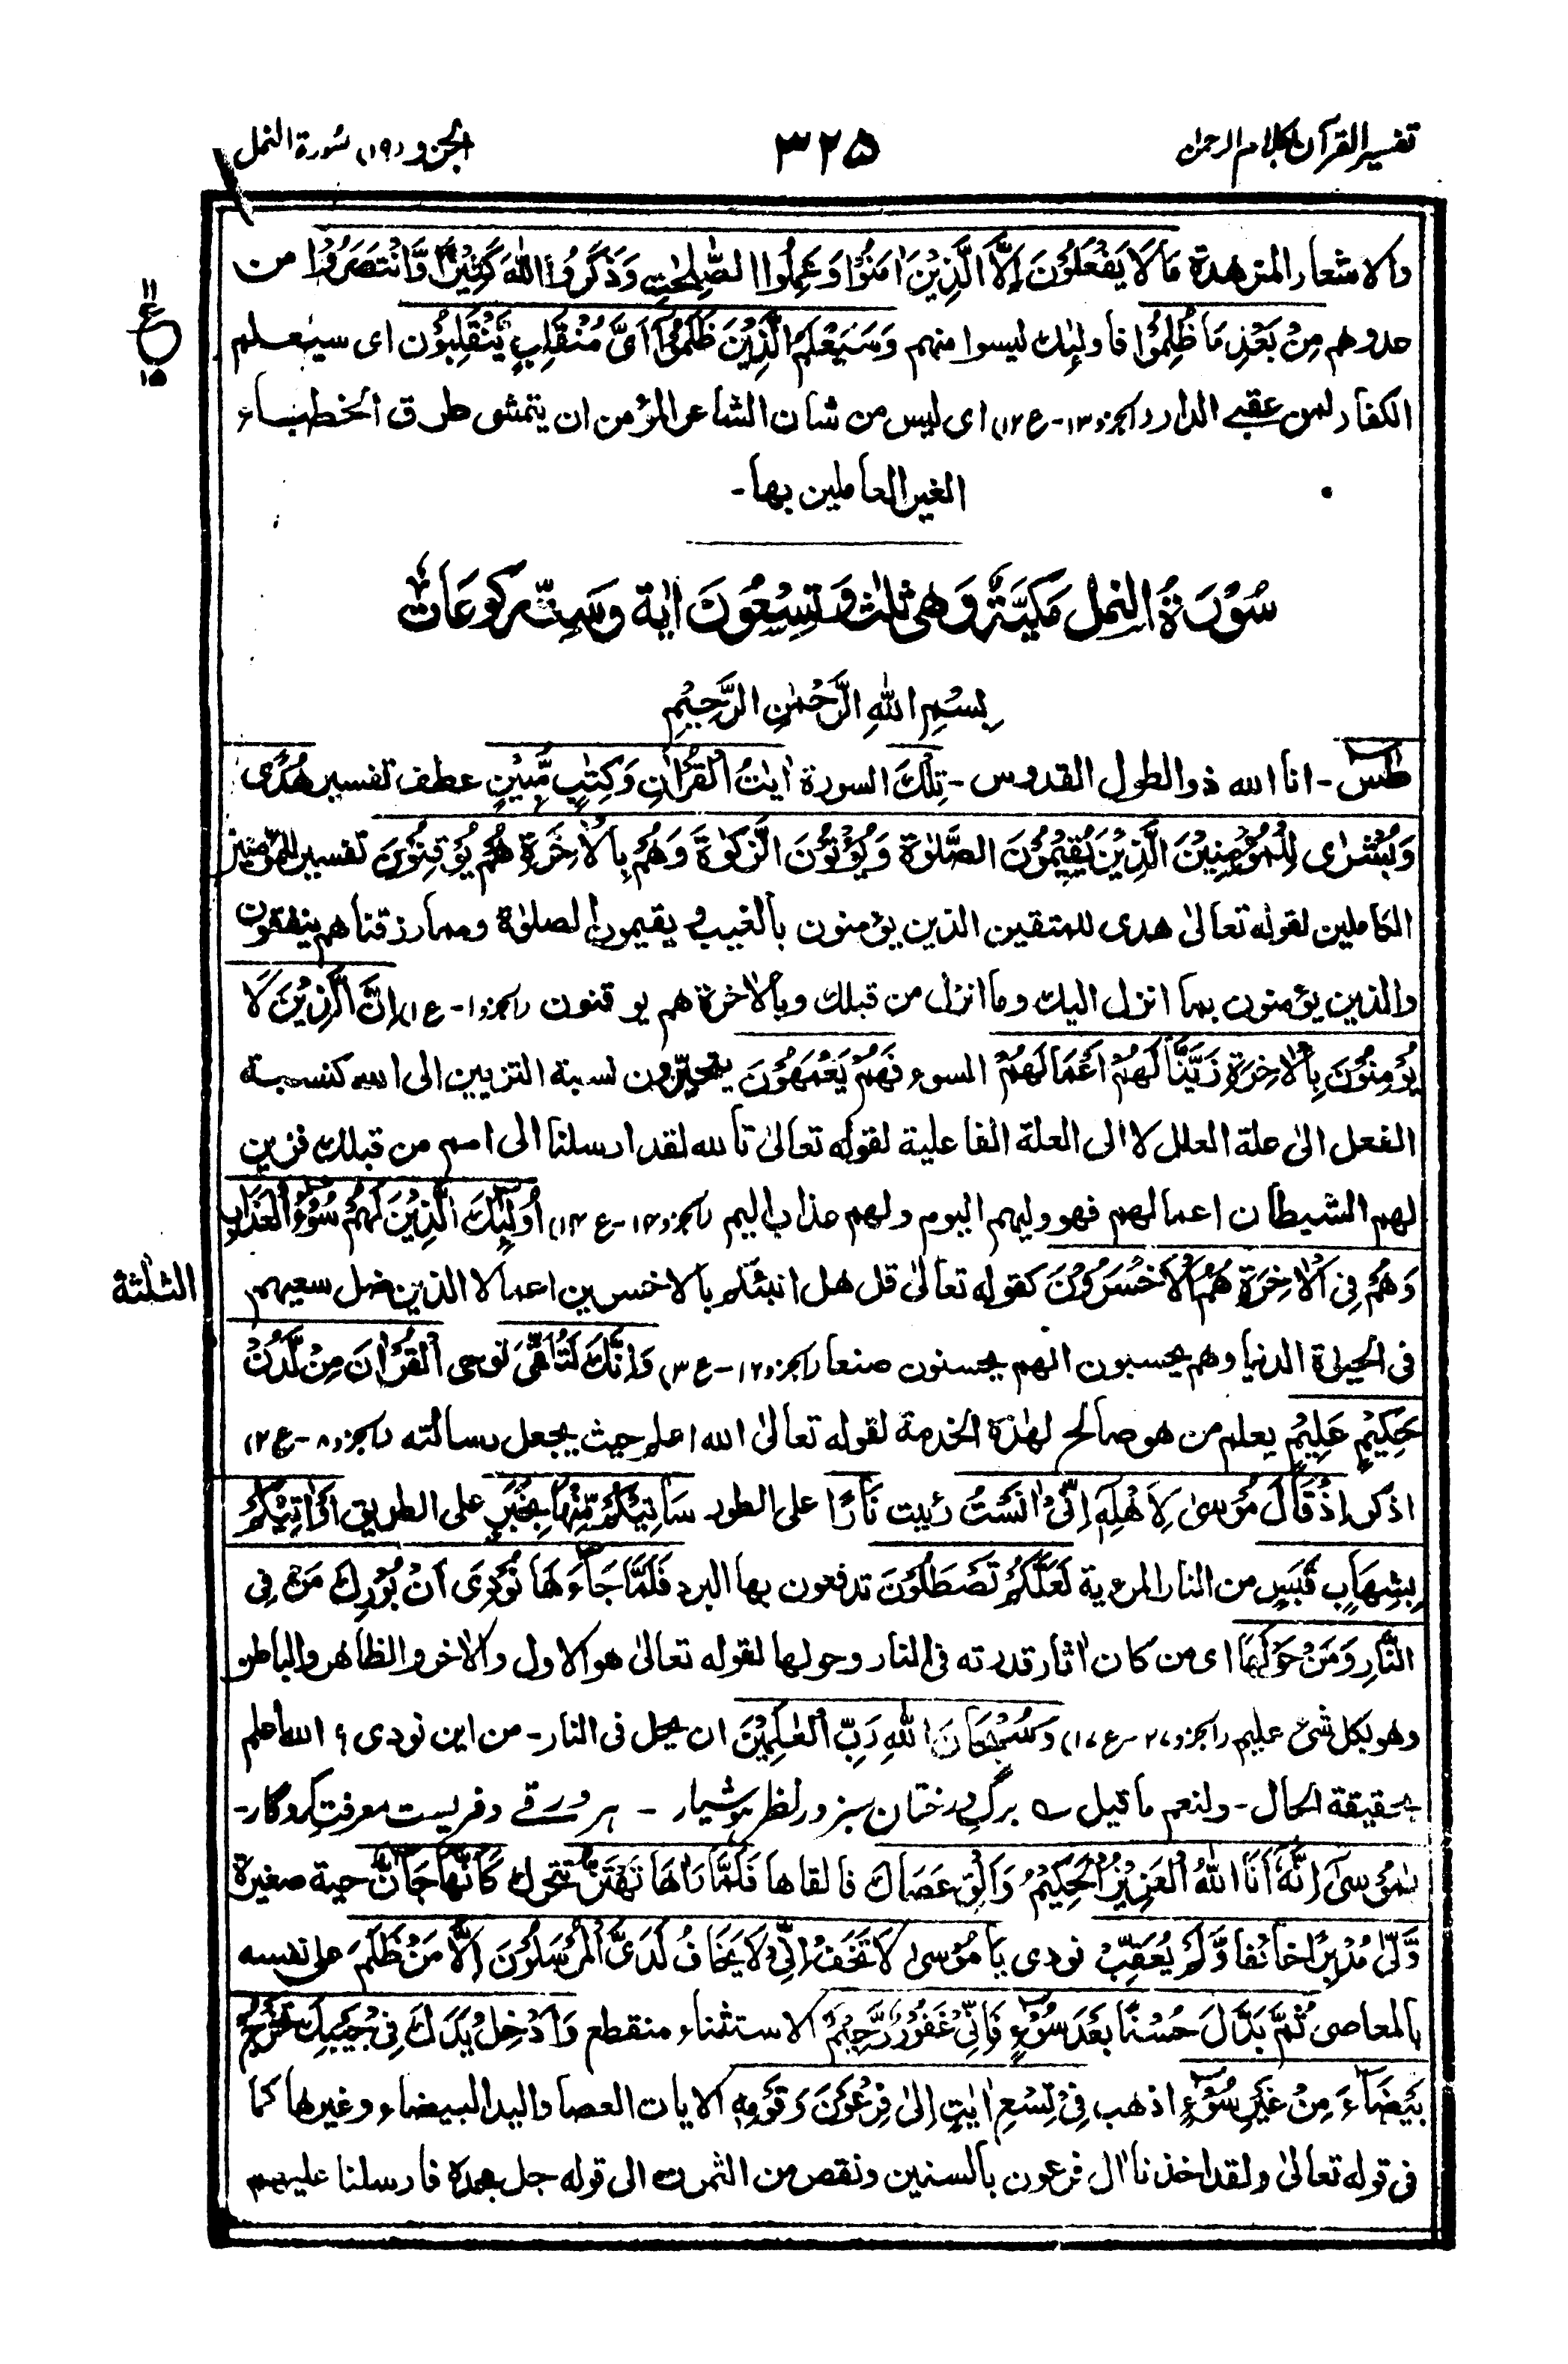 تفسير القرآن بكلام الرحمان
٣٢٥
الجزو (١٩) سورة النمل
والاشعار المتزهدة مَا لَا يَفْعَلُوْنَ اِلَّا الَّذِيْنَ اٰمَنُوْا وَعَمِلُوا الصّٰلِحٰتِ وَذَكَرُوا اللّٰهَ كَثِيْرًا وَّانْتَصَرُوْا من
عدوهم مِنْ بَعْدِ مَا ظُلِمُوْا فاولٰئك ليسوا منهم وَسَيَعْلَمُ الَّذِيْنَ ظَلَمُوْٓا اَىَّ مُنْقَلَبٍ يَّنْقَلِبُوْنَ اى سيعلم
١١
ع
١٥
الكفار لمن عقبى الدار (الجزو ١٣-ع ١٢) اى ليس من شان الشاعر المؤمن ان يتمشى طرق الخطباء
الغير العاملين بها-
سُوْرَةُ النمل مَكِيَّةٌ وَهى ثلٰث وَتِسْعُوْنَ اٰية وسِتّ ركوعَات
بِسْمِ اللهِ الرَّحْمٰنِ الرَّحِيْمِ
طٰسٓ - انا الله ذو الطول القدوس - تِلْكَ السورة اٰيٰتُ الْقُرْاٰنِ وَكِتٰبٍ مُّبِيْنٍ عطف تفسير هُدًى
وَبُشْرٰى لِلْمُؤْمِنِيْنَ الَّذِيْنَ يُقِيْمُوْنَ الصَّلٰوةَ وَيُؤْتُوْنَ الزَّكٰوةَ وَهُمْ بِالْاٰخِرَةِ هُمْ يُوْقِنُوْنَ تفسير للمؤمنين
الكاملين لقوله تعالىٰ هدى للمتقين الذين يؤمنون بالغيب و يقيمون الصلوٰة ومما رزقناهم ينفقون
والذين يؤمنون بما انزل اليك وما انزل من قبلك وبالاٰخرة هم يوقنون (الجزو ١-ع ١) اِنَّ الَّذِيْنَ لَا
يُؤْمِنُوْنَ بِالْاٰخِرَةِ زَيَّنَّا لَهُمْ اَعْمَالَهُمْ السوء فَهُمْ يَعْمَهُوْنَ يتحيّرون نسبة التزيين الى الله كنسبة
الفعل الىٰ علة العلل لا الى العلة الفاعلية لقوله تعالىٰ تالله لقد ارسلنا الى امم من قبلك فزين
لهم الشيطان اعمالهم فهو وليهم اليوم ولهم عذاب اليم (الجزو ١٤-ع ١٤) اُولٰٓئِكَ الَّذِيْنَ لَهُمْ سُوْٓءُ الْعَذَابِ
وَهُمْ فِى الْاٰخِرَةِ هُمُ الْاَخْسَرُوْنَ كقوله تعالىٰ قل هل انبئكم بالاخسرين اعمالا الذين ضل سعيهم
الثلٰثة
فى الحيوٰة الدنيا وهم يحسبون انهم يحسنون صنعا (الجزو ١٢-ع ٣) وَاِنَّكَ لَتُلَقَّى توحى الْقُرْاٰنَ مِنْ لَّدُنْ
حَكِيْمٍ عَلِيْمٍ يعلم من هو صالح لهٰذه الخدمة لقوله تعالىٰ الله اعلم حيث يجعل رسالته (الجزو ٨-ع ٢)
اذكر اِذْ قَالَ مُوْسٰى لِاَهْلِهٖٓ اِنِّىْٓ اٰنَسْتُ رئيت نَارًا على الطور سَاٰتِيْكُمْ مِّنْهَا بِخَبَرٍ على الطريق اَوْ اٰتِيْكُمْ
بِشِهَابٍ قَبَسٍ من النار المرءية لَعَلَّكُمْ تَصْطَلُوْنَ تدفعون بها البرد فَلَمَّا جَآءَهَا نُوْدِىَ اَنْۢ بُوْرِكَ مَنْ فِى
النَّارِ وَمَنْ حَوْلَهَا اى من كان اٰثار قدرته فى النار وحولها لقوله تعالىٰ هو الاول والاٰخر والظاهر والباطن
وهو بكل شئ عليم (الجزو ٢٧-ع ١٧) وَسُبْحَانَ اللّٰهِ رَبِّ الْعٰلَمِيْنَ ان يحل فى النار - من اين نودى؟ الله اعلم
بحقيقة الحال - ولنعم ما قيل ؎ برگ درختان سبز در نظر ہوشیار - ہر ورقے دفتریست معرفت کردگار-
يٰمُوْسٰٓى اِنَّهٗٓ اَنَا اللّٰهُ الْعَزِيْزُ الْحَكِيْمُ وَاَلْقِ عَصَاكَ فالقاها فَلَمَّا رَاٰهَا تَهْتَزُّ تتحرك كَاَنَّهَا جَآنٌّ حية صغيرة
وَّلّٰى مُدْبِرًا خائفا وَّلَمْ يُعَقِّبْ نودى يَا مُوْسٰى لَا تَخَفْ اِنِّىْ لَا يَخَافُ لَدَىَّ الْمُرْسَلُوْنَ اِلَّا مَنْ ظَلَمَ على نفسه
بالمعاصى ثُمَّ بَدَّلَ حُسْنًۢا بَعْدَ سُوْٓءٍ فَاِنِّىْ غَفُوْرٌ رَّحِيْمٌ الاستثناء منقطع وَاَدْخِلْ يَدَكَ فِىْ جَيْبِكَ تَخْرُجْ
بَيْضَآءَ مِنْ غَيْرِ سُوْٓءٍ اذهب فِىْ تِسْعِ اٰيٰتٍ اِلٰى فِرْعَوْنَ وَقَوْمِهٖ الاٰيات العصا واليد البيضاء وغيرها كما
فى قوله تعالىٰ ولقد اخذنا اٰل فرعون بالسنين ونقص من الثمرٰت الى قوله جل مجده فارسلنا عليهم